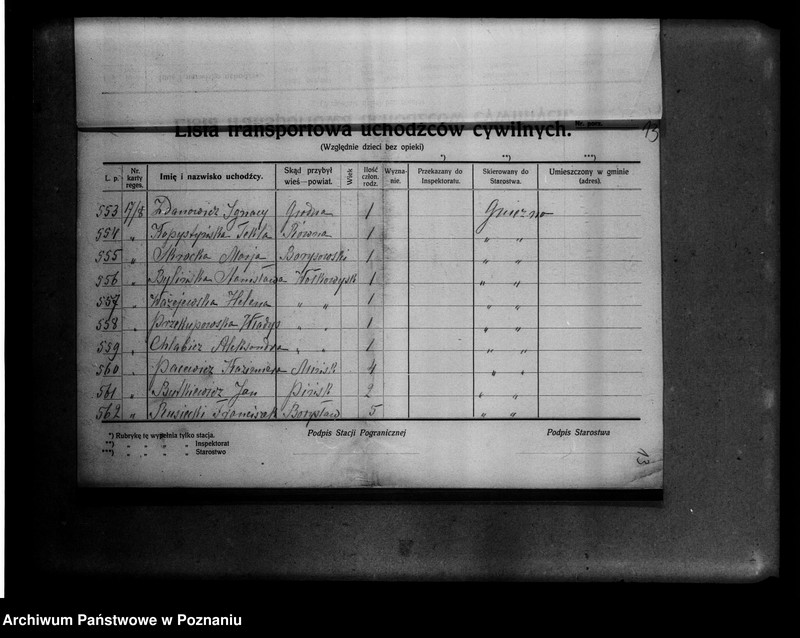 Lista transportowa uchodźców cywilnych.
13
(Względnie dzieci bez opieki)
*) **) ***)
L. p. Nr. karty reges. Imię i nazwisko uchodźcy. Skąd przybył wieś—powiat. Wiek Ilość człon. rodz. Wyzna-nie. Przekazany do Inspektoratu. Skierowany do Starostwa. Umieszczony w gminie (adres).
553 17/8 Zdanowicz Ignacy Grodna 1 Gniezno
554 " Tekla Równa 1 " "
555 " Skrocka Marja Borysowski 1 " "
556 " Bylińska Stanisława Wołkowysk 1 " "
557 " Helena " " 1 " "
558 " Władys " " 1 " "
559 " Chlabicz Aleksandra " " 1 " "
560 " Kazimiera Mińsk 4 " "
561 " Butkiewicz Jan Pińsk 2 " "
562 " Franciszek Borysław 5 " "
*) Rubrykę tę wypełnia tylko stacja.
**) " " " " Inspektorat
***) " " " " Starostwo
Podpis Stacji Pogranicznej
Podpis Starostwa
13
Archiwum Państwowe w Poznaniu